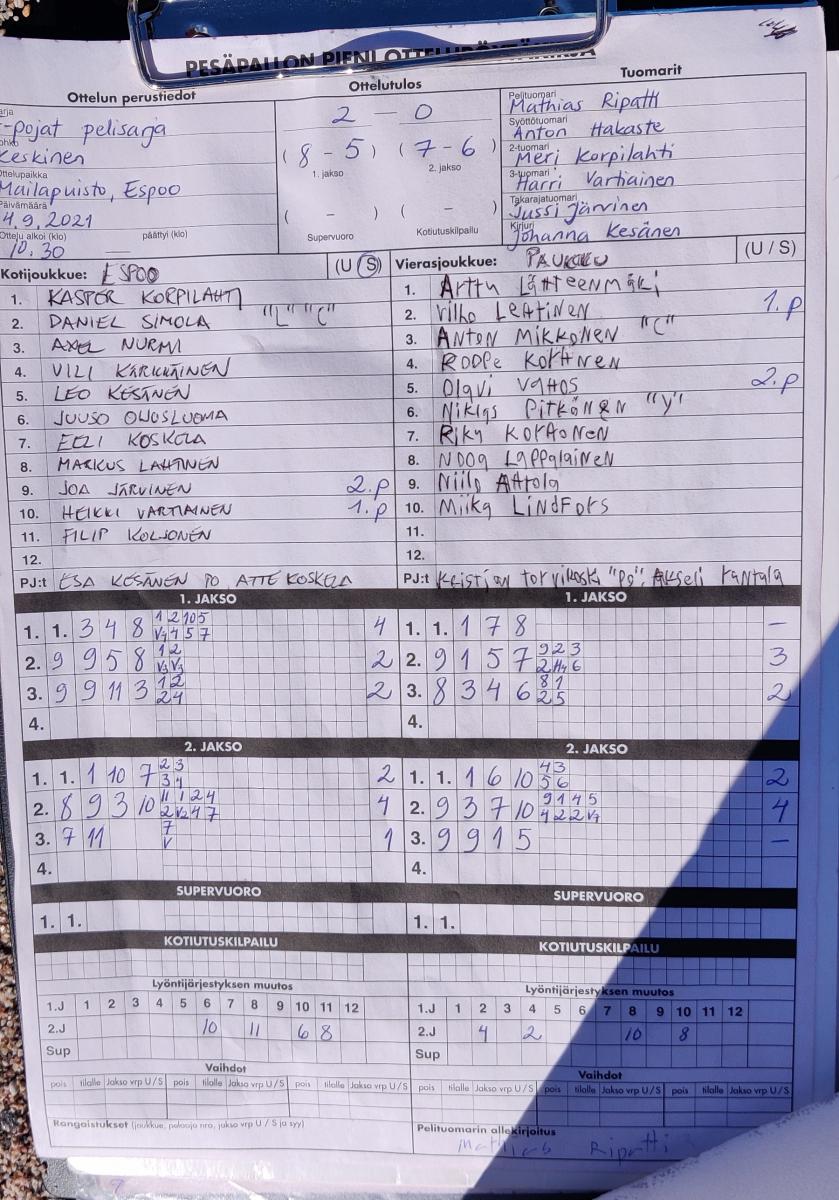 PESÄPALLON PIENI OTTELUPÖYTÄKIRJA
Ottelun perustiedot
-pojat pelisarja
Keskinen
Ottelupaikka
Mailapuisto, Espoo
Päivämäärä
4.9.2021
Ottelu alkoi (klo) päättyi (klo)
10.30 —
Ottelutulos
2 — 0
(8 - 5) (7 - 6)
1. jakso 2. jakso
( - ) ( - )
Supervuoro Kotiutuskilpailu
Tuomarit
Pelituomari
Mathias Ripatti
Syöttötuomari
Anton Hakaste
2-tuomari
Meri Korpilahti
3-tuomari
Harri Vartiainen
Takarajatuomari
Jussi Järvinen
Kirjuri
Johanna Kesänen
Kotijoukkue: ESPOO (U S)
1. KASPER KORPILAHTI
2. DANIEL SIMOLA "L" "C"
3. AXEL NURMI
4. VILI KÄRKKÄINEN
5. LEO KESÄNEN
6. JUUSO
7. EELI KOSKELA
8. MARKUS LAHTINEN
9. JOA JÄRVINEN 2.p
10. HEIKKI VARTIAINEN 1.p
11. FILIP KOLJONEN
12.
PJ:t ESA KESÄNEN PO ATTE KOSKELA
Vierasjoukkue: (U / S)
1. Arttu Lähteenmäki
2. Vilho Lehtinen 1.p
3. Anton Mikkonen "C"
4. Roope Korhnen
5. Olavi Vahos 2.p
6. Niklas Pitkönen "Y"
7. Riku Korhonen
8. Nooa Lappalainen
9. Niilo Ahtola
10. Miika Lindfors
11.
12.
PJ:t Kristian "PO", Akseli Rantala
1. JAKSO
1. 1. 3 4 8 1 2 10 5 4
V4 4 5 7
2. 9 9 5 8 1 2 2
V3 V4
3. 9 9 11 3 1 2 2
2 4
4.
1. JAKSO
1. 1. 1 7 8 —
2. 9 1 5 7 9 2 3 3
2 H4 6
3. 8 3 4 6 8 1 2
2 5
4.
2. JAKSO
1. 1. 1 10 7 2 3 2
3 4
2. 8 9 3 10 11 1 2 4 4
2 V2 4 7
3. 7 11 7 1
V
4.
2. JAKSO
1. 1. 1 6 10 4 3 2
5 6
2. 9 3 7 10 9 1 4 5 4
4 2 2 V4
3. 9 9 1 5 —
4.
SUPERVUORO
1. 1.
SUPERVUORO
1. 1.
KOTIUTUSKILPAILU
KOTIUTUSKILPAILU
Lyöntijärjestyksen muutos
1.J 1 2 3 4 5 6 7 8 9 10 11 12
2.J 10 11 6 8
Sup
Lyöntijärjestyksen muutos
1.J 1 2 3 4 5 6 7 8 9 10 11 12
2.J 4 2 10 8
Sup
Vaihdot
pois tilalle Jakso vrp U / S pois tilalle Jakso vrp U / S pois tilalle Jakso vrp U / S
Vaihdot
pois tilalle Jakso vrp U / S pois tilalle Jakso vrp U / S pois tilalle Jakso vrp U / S
Rangaistukset (joukkue, pelaaja nro, jakso vrp U / S ja syy)
Pelituomarin allekirjoitus
Mathias Ripatti